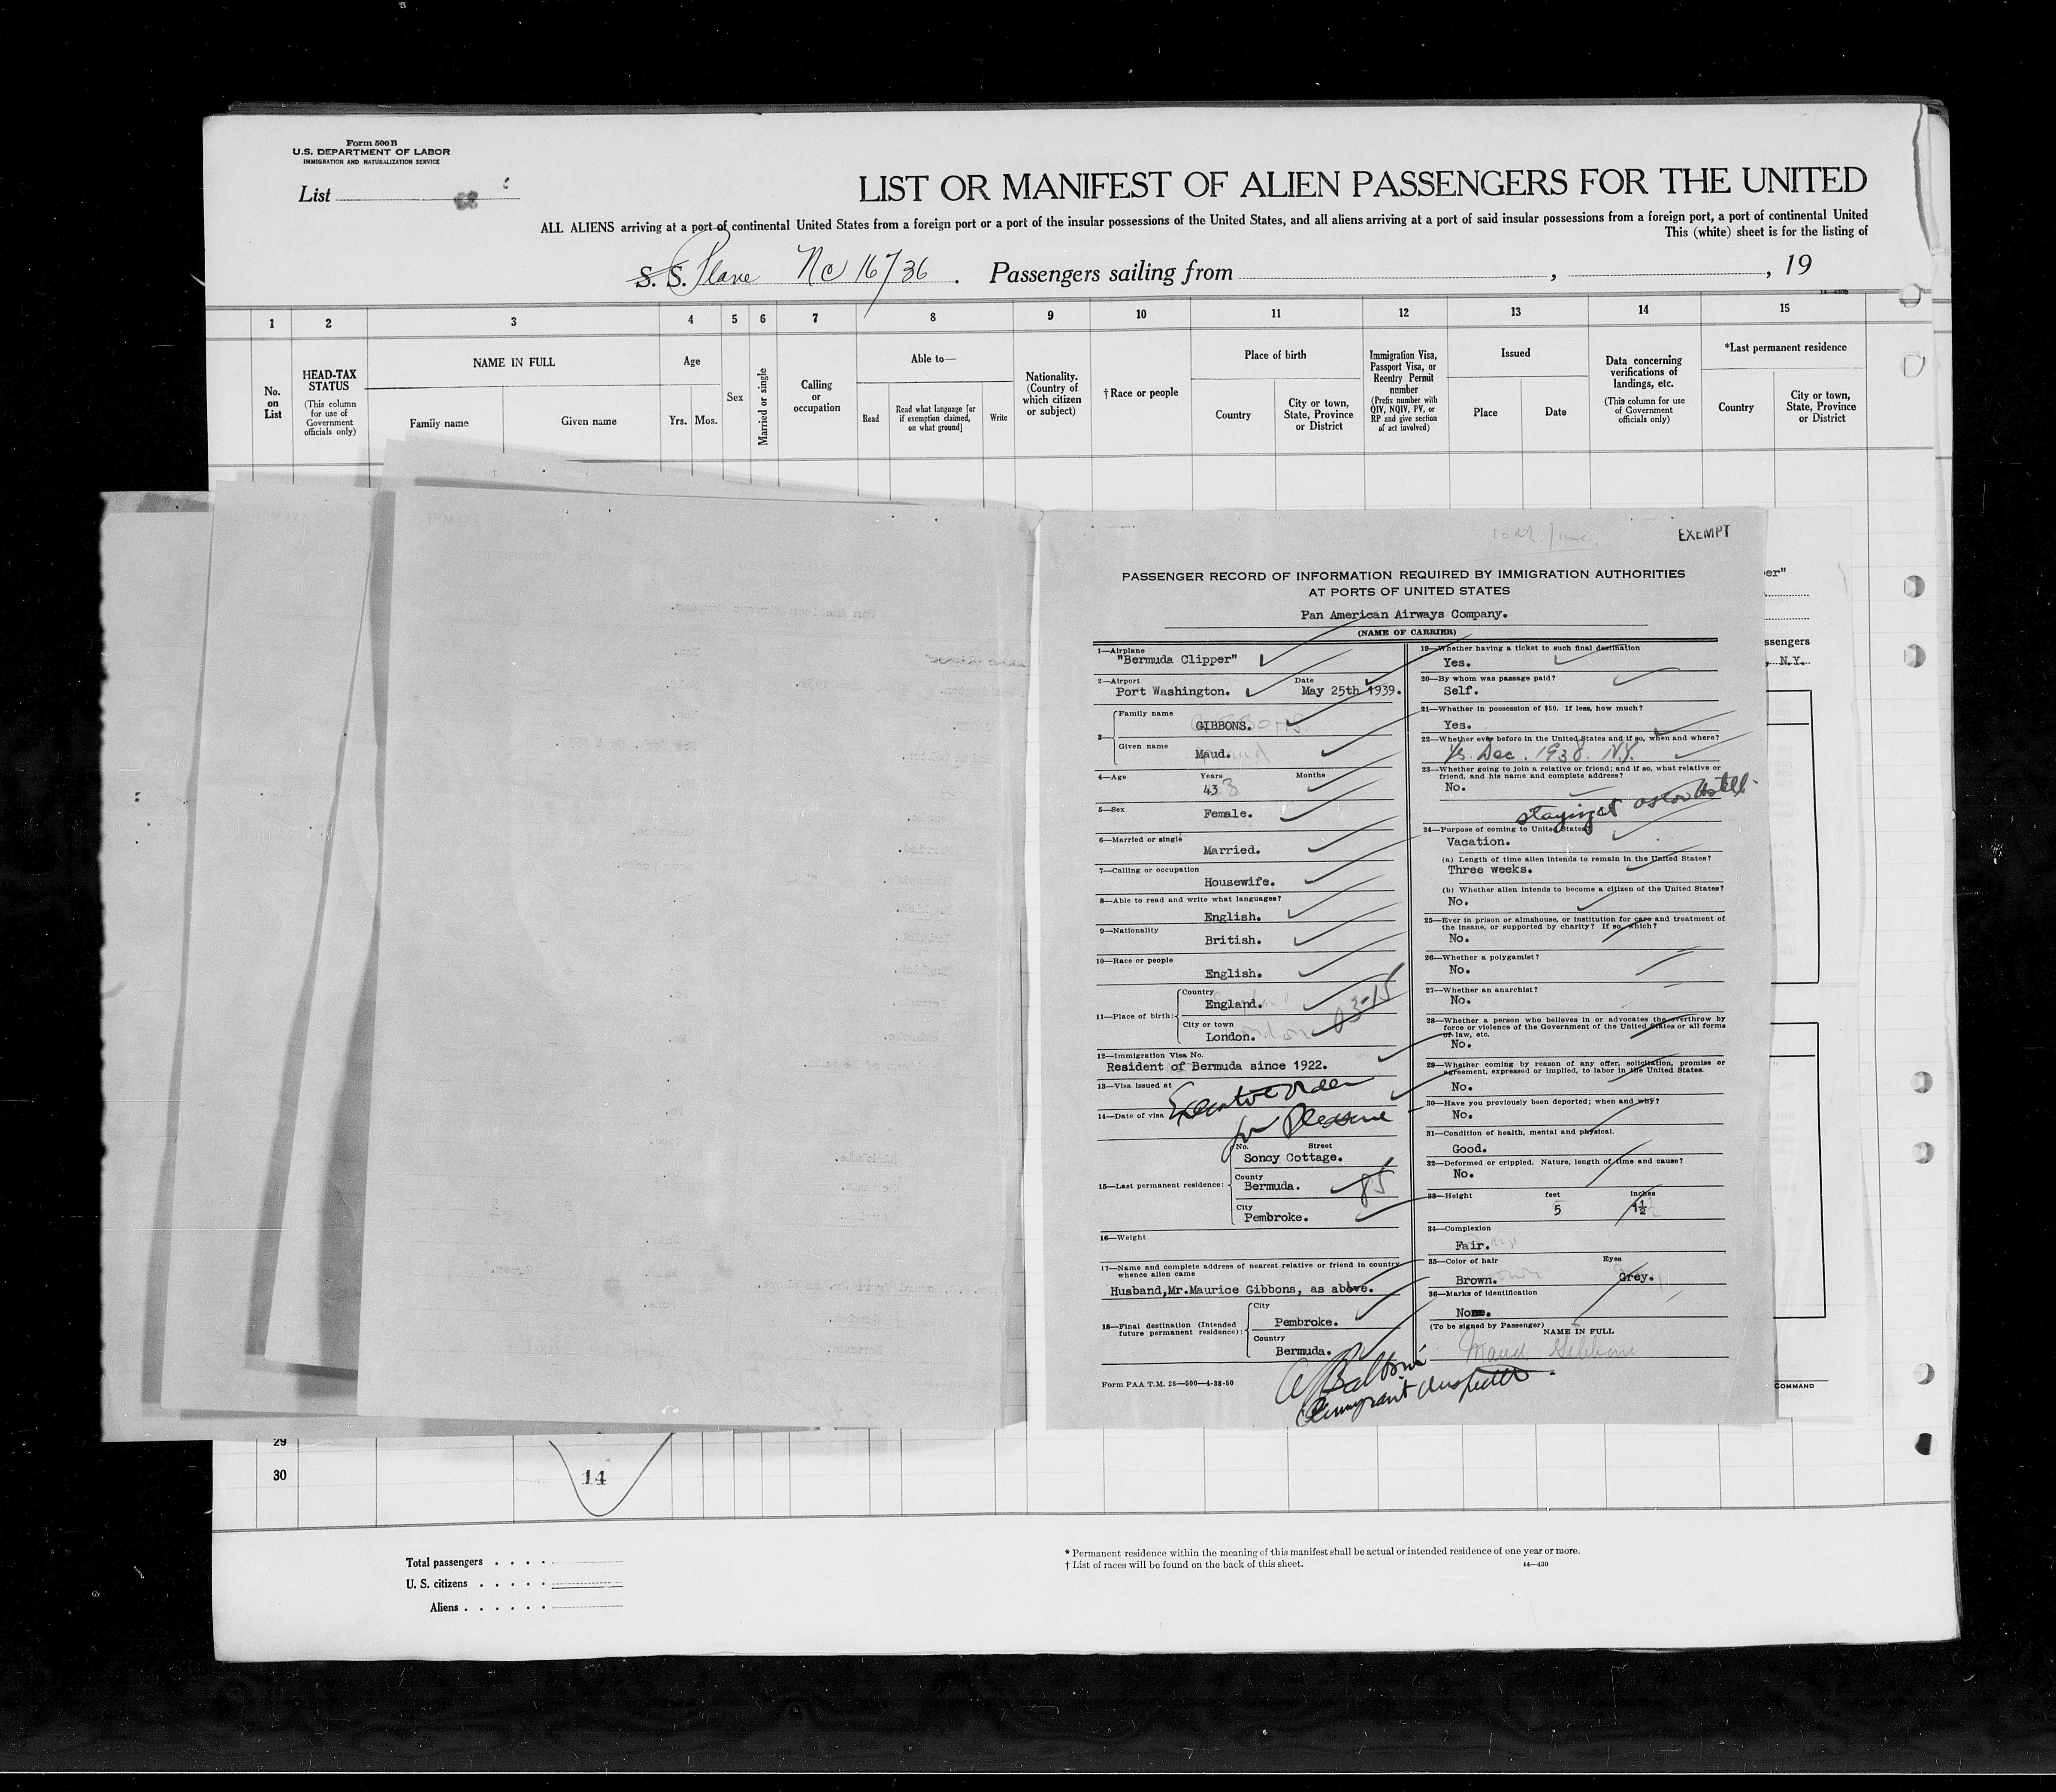 Form 500B
U.S. DEPARTMENT OF LABOR
IMMIGRATION AND NATURALIZATION SERVICE
List
LIST OR MANIFEST OF ALIEN PASSENGERS FOR THE UNITED
ALL ALIENS arriving at a port of continental United States from a foreign port or a port of the insular possessions of the United States, and all aliens arriving at a port of said insular possessions from a foreign port, a port of continental United
This (white) sheet is for the listing of
S. S. Plane NC 16736. Passengers sailing from , , 19
1 2 3 4 5 6 7 8 9 10 11 12 13 14 15
No. on List
HEAD-TAX STATUS
(This column for use of Government officials only)
NAME IN FULL
Family name
Given name
Age
Yrs. Mos.
Sex
Married or single
Calling or occupation
Able to—
Read
Read what language [or if exemption claimed, on what ground]
Write
Nationality. (Country of which citizen or subject)
† Race or people
Place of birth
Country
City or town, State, Province or District
Immigration Visa, Passport Visa, or Reentry Permit number
(Prefix number with QIV, NQIV, PV, or RP and give section of act involved)
Issued
Place
Date
Data concerning verifications of landings, etc.
(This column for use of Government officials only)
*Last permanent residence
Country
City or town, State, Province or District
EXEMPT
PASSENGER RECORD OF INFORMATION REQUIRED BY IMMIGRATION AUTHORITIES
AT PORTS OF UNITED STATES
Pan American Airways Company.
(NAME OF CARRIER)
1—Airplane
"Bermuda Clipper"
2—Airport Date
Port Washington. May 25th 1939.
3— Family name
GIBBONS.
Given name
Maud.
4—Age Years Months
43
5—Sex
Female.
6—Married or single
Married.
7—Calling or occupation
Housewife.
8—Able to read and write what languages?
English.
9—Nationality
British.
10—Race or people
English.
11—Place of birth: Country
England.
City or town
London.
12—Immigration Visa No.
Resident of Bermuda since 1922.
13—Visa issued at
Executive Order
14—Date of visa
for Pleasure
No. Street
Soncy Cottage.
15—Last permanent residence: County
Bermuda.
85
City
Pembroke.
16—Weight
17—Name and complete address of nearest relative or friend in country whence alien came
Husband,Mr.Maurice Gibbons, as above.
18—Final destination (Intended future permanent residence): City
Pembroke.
Country
Bermuda.
Form PAA T.M. 28—500—4-38-50
Immigrant Inspector.
19—Whether having a ticket to such final destination
Yes.
20—By whom was passage paid?
Self.
21—Whether in possession of $50. If less, how much?
Yes.
22—Whether ever before in the United States and if so, when and where?
Dec. 1938. N.Y.
23—Whether going to join a relative or friend; and if so, what relative or friend, and his name and complete address?
No.
staying at Astor Hotel.
24—Purpose of coming to United States?
Vacation.
(a) Length of time alien intends to remain in the United States?
Three weeks.
(b) Whether alien intends to become a citizen of the United States?
No.
25—Ever in prison or almshouse, or institution for care and treatment of the insane, or supported by charity? If so, which?
No.
26—Whether a polygamist?
No.
27—Whether an anarchist?
No.
28—Whether a person who believes in or advocates the overthrow by force or violence of the Government of the United States or all forms of law, etc.
No.
29—Whether coming by reason of any offer, solicitation, promise or agreement, expressed or implied, to labor in the United States.
No.
30—Have you previously been deported; when and why?
No.
31—Condition of health, mental and physical.
Good.
32—Deformed or crippled. Nature, length of time and cause?
No.
33—Height feet inches
5 1½
34—Complexion
Fair.
35—Color of hair Eyes
Brown. Grey.
36—Marks of identification
None.
(To be signed by Passenger)
NAME IN FULL
Maud Gibbons
er"
ssengers
N.Y.
COMMAND
29
30
14
Total passengers
U. S. citizens
Aliens
* Permanent residence within the meaning of this manifest shall be actual or intended residence of one year or more.
† List of races will be found on the back of this sheet.
14—430